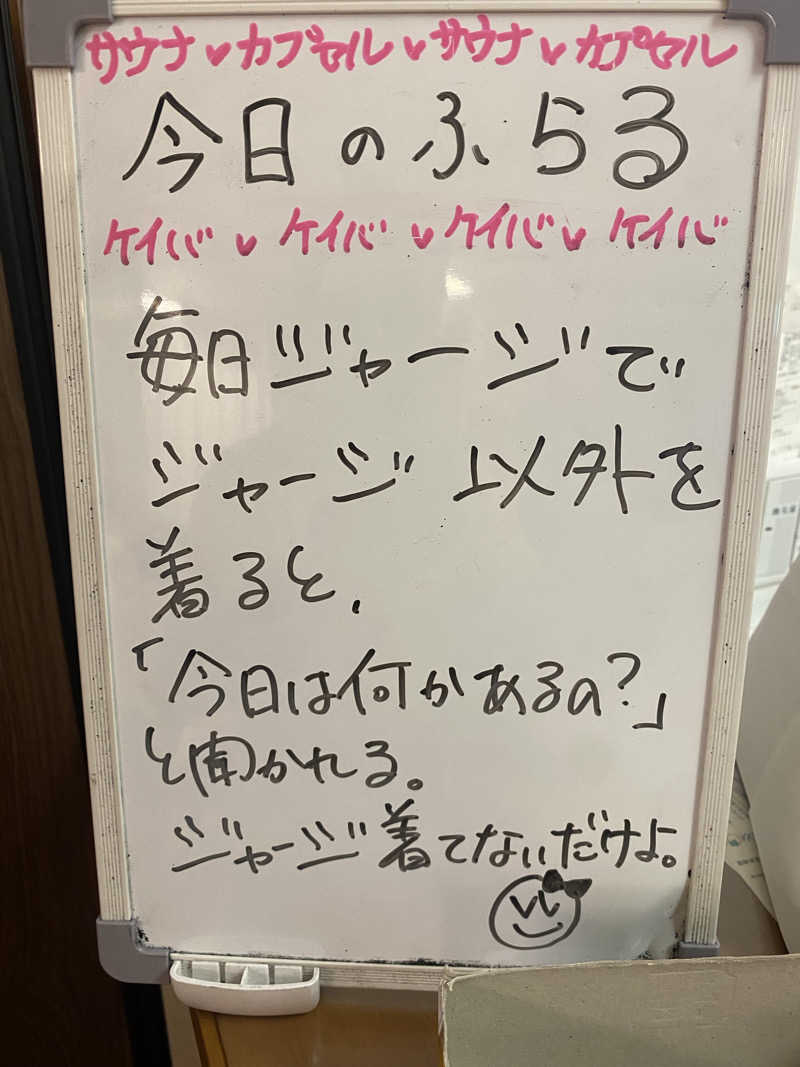 サウナ♥カプセル♥サウナ♥カプセル
今日のふらる
ケイバ♥ケイバ♥ケイバ♥ケイバ
毎日ジャージで
ジャージ以外を
着ると、
「今日は何かあるの?」
と聞かれる。
ジャージ着てないだけよ。